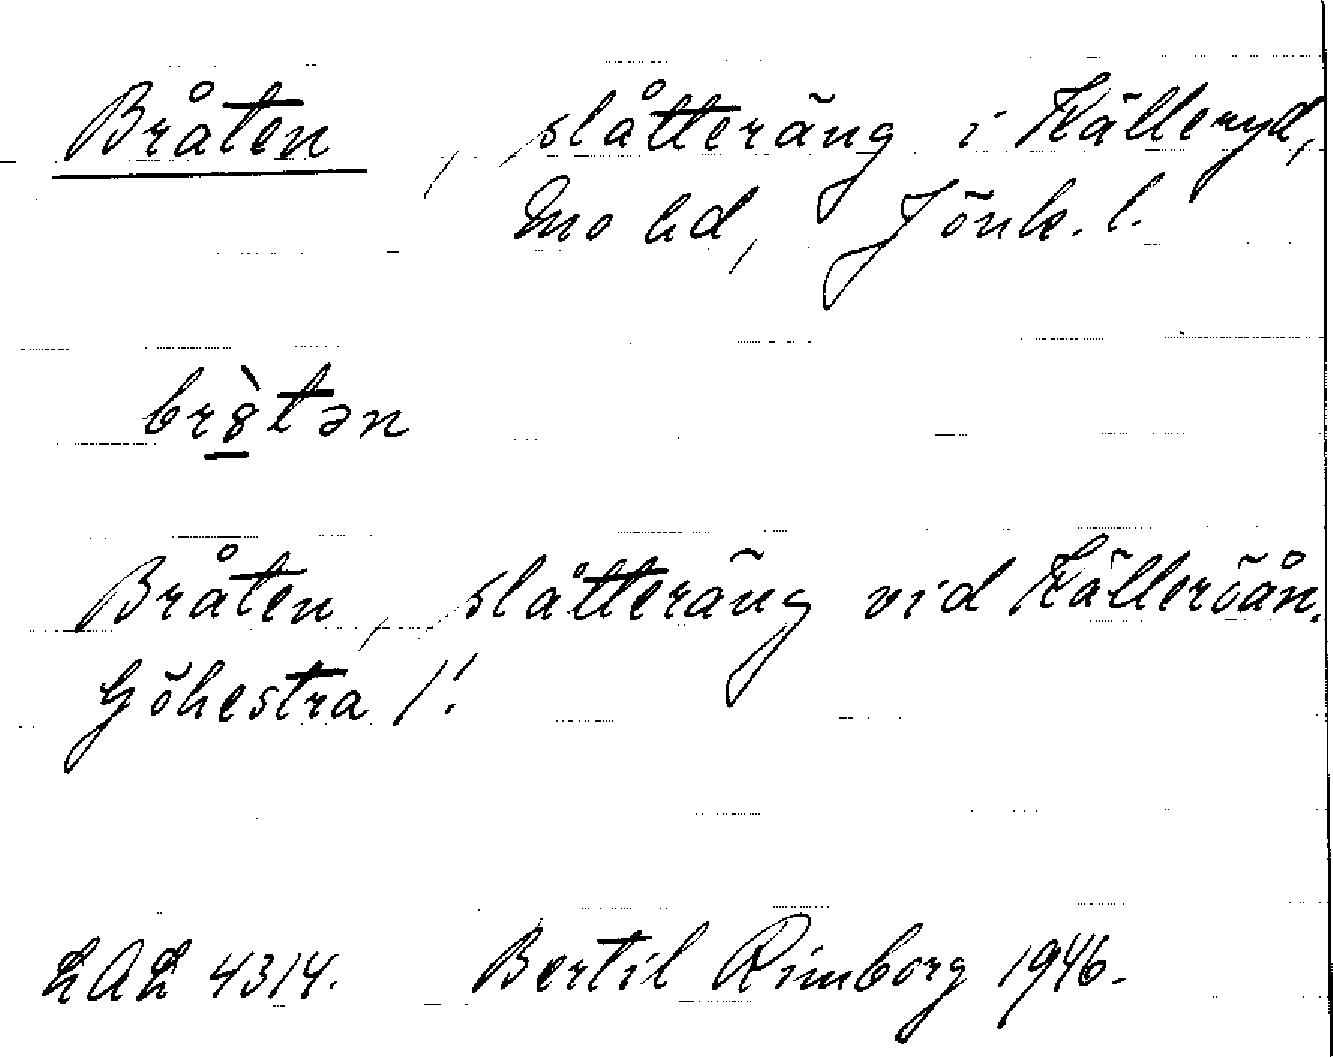 Bråten, slåtteräng i Källeryd,
Mo hd, Jönk. l.
brö̀tən
Bråten, slåtteräng vid Källeröån.
Göhestra /!
LAL 4314. Bertil Rimborg 1946.